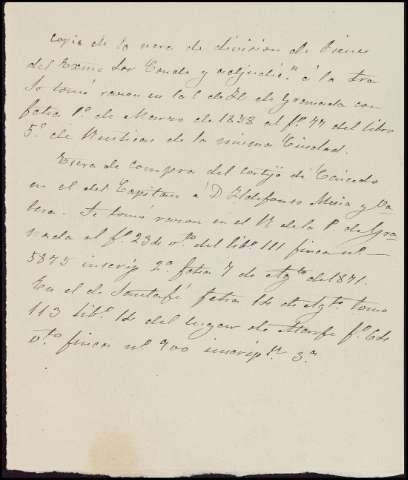 copia de la nera de division de bienes
del Exmo Sor Conde y adjudicn. á la Sra
Se tomó razon en la C de H. de Granada con
fecha 1º de Marzo de 1838 al fº 77 del libro
5º de Rusticas de la misma Ciudad.
Escra de compra del cortijo de Caicedo
en el del Capitan á D Ildefonso Mesia y Va
lera. Se tomó razon en el R de la P. de Gra
nada al fº 23 de vto del libº 111 finca nº
5875 inscrip 2ª fecha 7 de Agto de 1871.
En el de Santafé fecha 12 de Agto tomo
113 libº 12 del lugar de fº 6
vto finca nº 900 inscripn 3ª